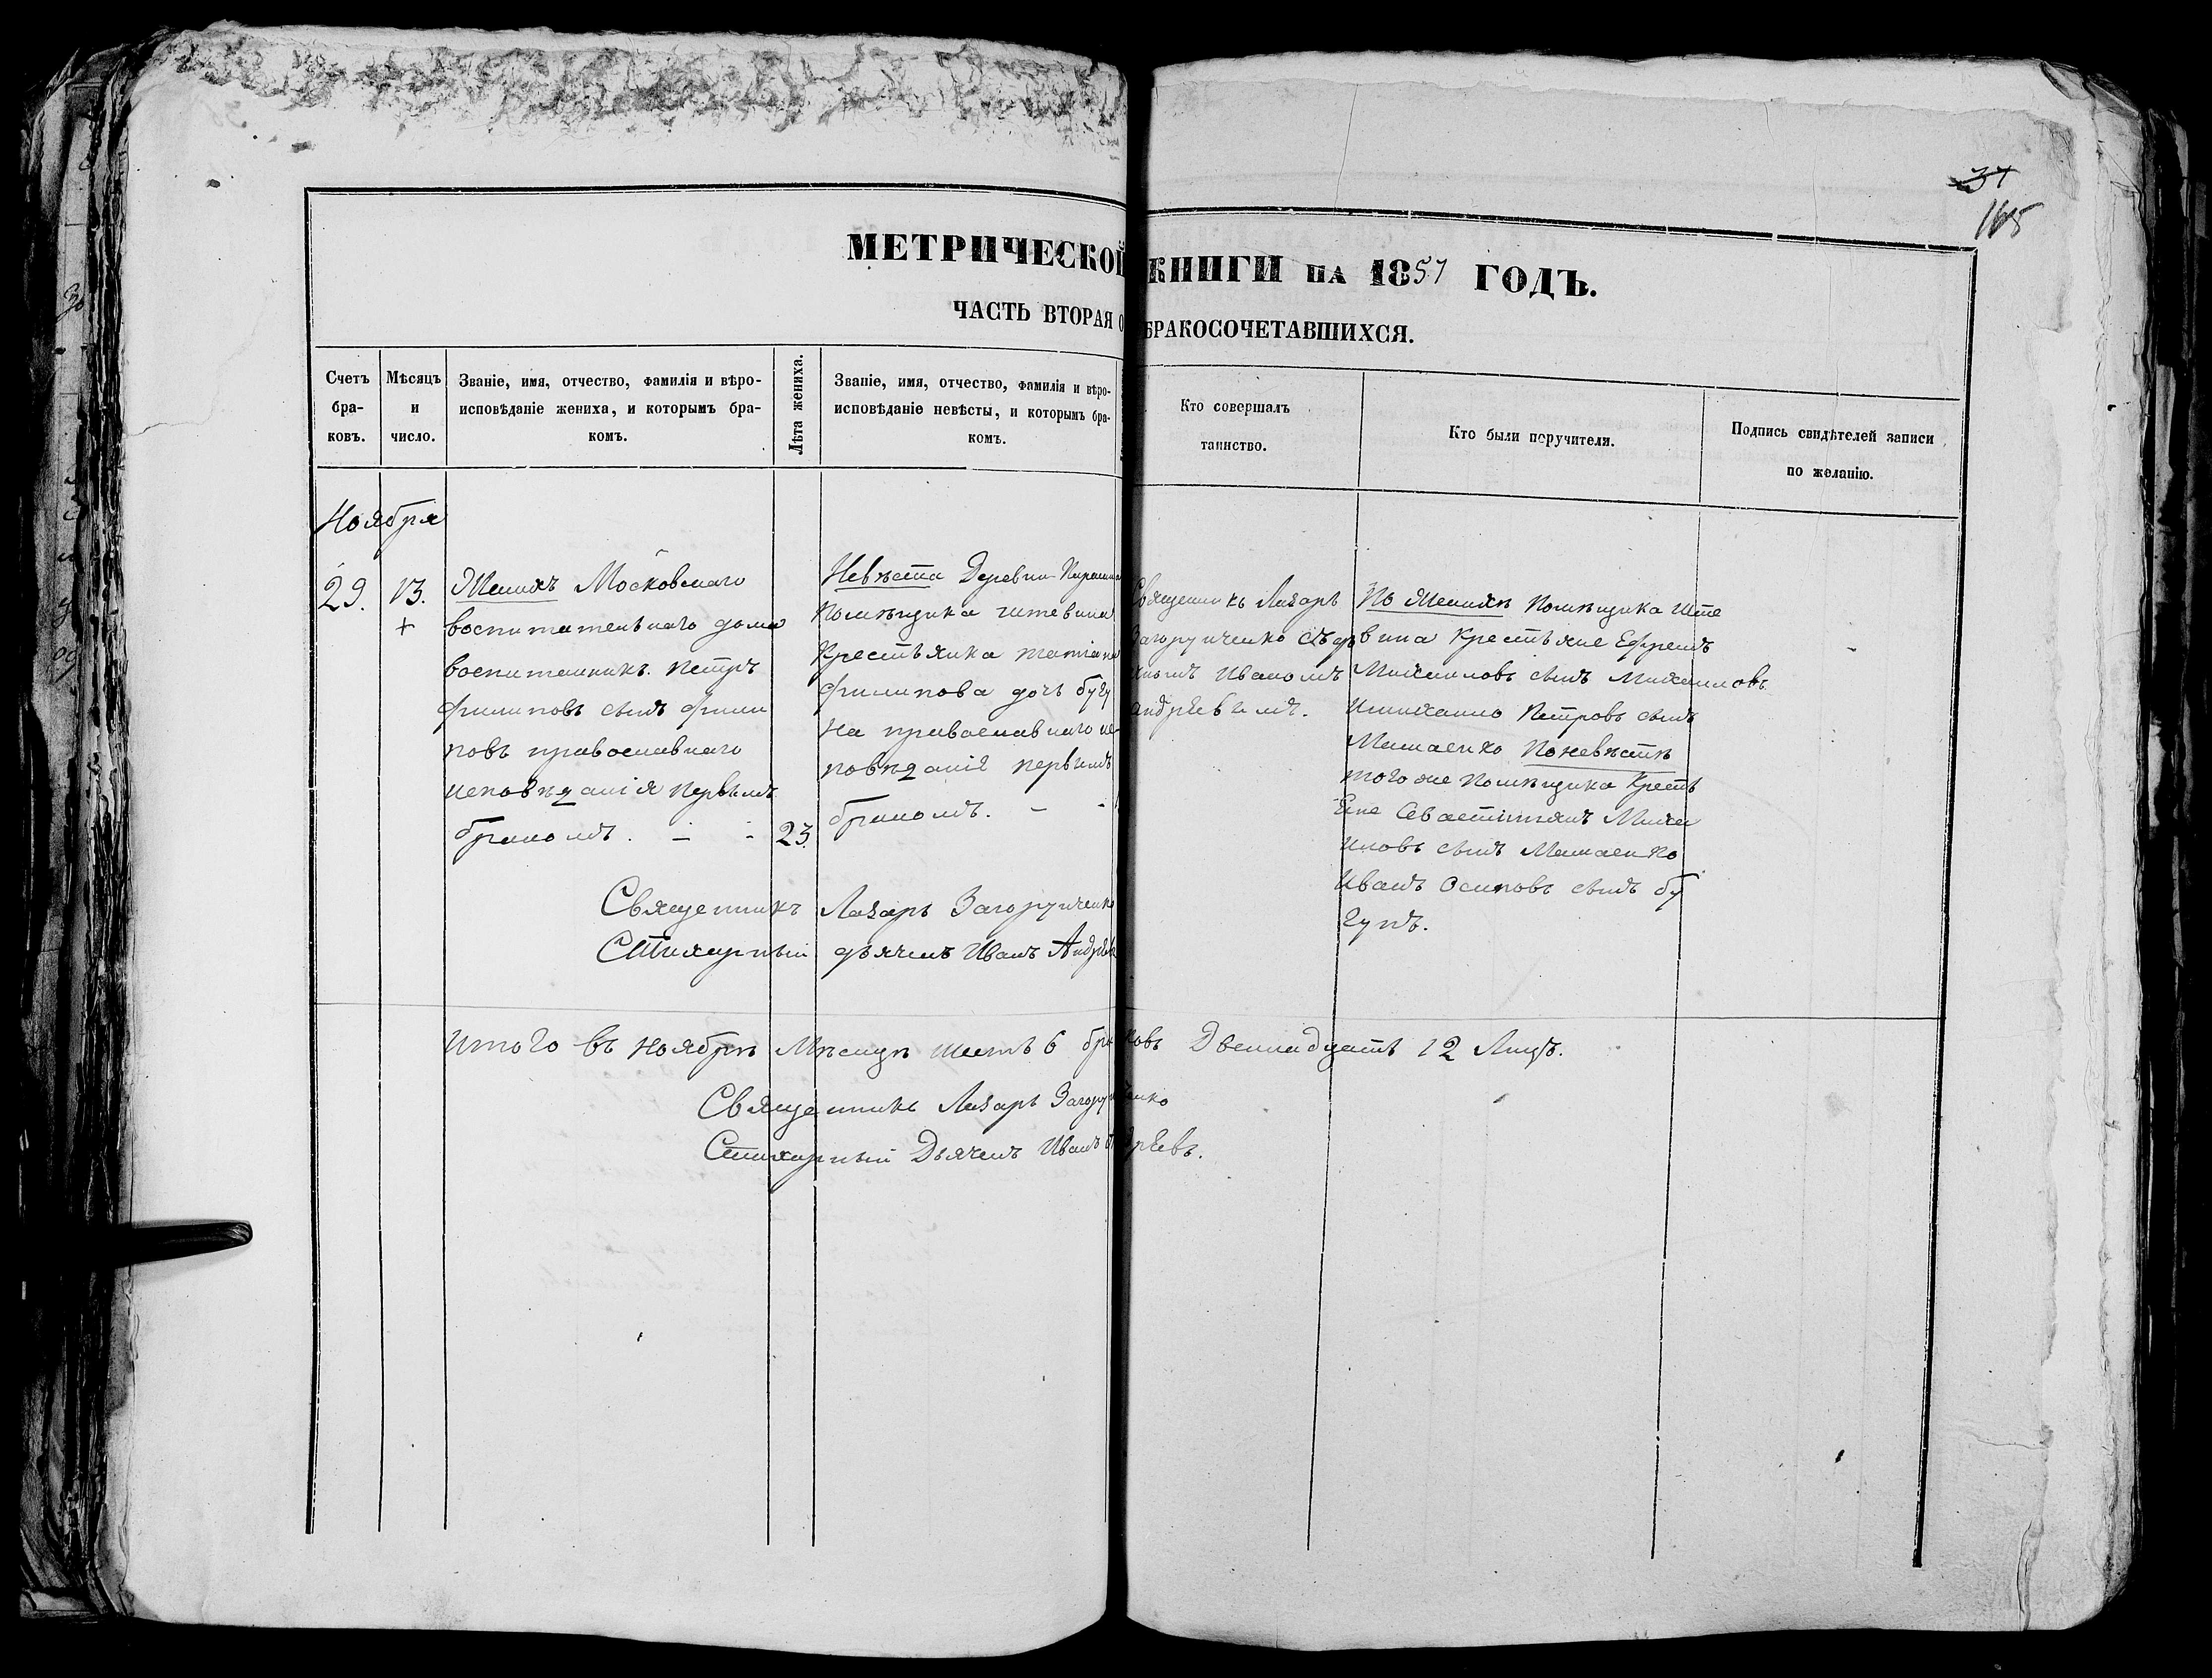 37
165
МЕТРИЧЕСКОЙ КНИГИ НА 1857 ГОДЪ.
ЧАСТЬ ВТОРАЯ О БРАКОСОЧЕТАВШИХСЯ.
Счетъ бра-
ковъ.
Мѣсяцъ
и
число.
Званіе, имя, отчество, фамилія и вѣро-
исповѣданіе жениха, и которымъ бра-
комъ.
Лѣта жениха.
Званіе, имя, отчество, фамилія и вѣро-
исповѣданіе невѣсты, и которымъ бра-
комъ.
Кто совершалъ
таинство.
Кто были поручители.
Подпись свидѣтелей записи
по желанію.
Ноября
29.
13.
+
Женихъ Московскаго
воспитательнаго дома
воспитанникъ Петръ
Филиповъ сынъ Фили
повъ православнаго
исповѣданія первымъ
бракомъ. - -
23.
Невѣста Деревни
Помѣщика Штевина
Крестьянка Татіана
Филипова дочь Бугу
на православнаго ис-
повѣданія первымъ
бракомъ. - -
Священникъ Лазарь
Загоруйченко съ дья
комъ Иваномъ
Андрѣевымъ.
По Женихѣ Помѣщика Ште
вина Крестьяне Ефремъ
Михаиловъ сынъ Михаиловъ.
Петровъ сынъ
По невѣстѣ
того же Помѣщика Кресть
яне Севастіянъ Михаи
иловъ сынъ
Иванъ Осиповъ сынъ Бу
гунъ.
Священникъ Лазарь Загоруйченко
Стихарный дьячекъ Иванъ Андрѣев
Итого въ Ноябрѣ Мѣсяцѣ шесть 6 браковъ Двенадцать 12 Лицъ.
Священникъ Лазарь Загоруйченко
Стихарный Дьячекъ Иванъ Андрѣевъ.